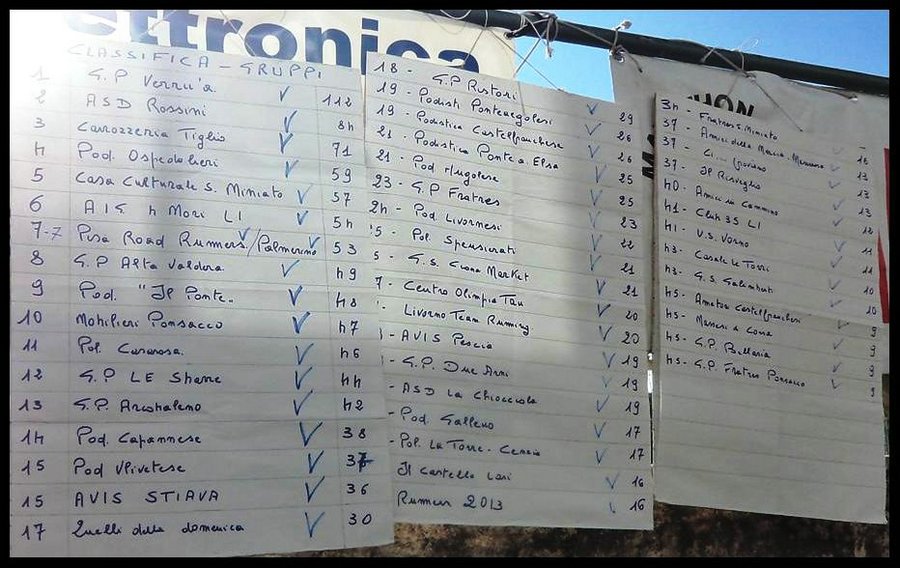 ettronica
CLASSIFICA - GRUPPI
1 G.P Verru'a 112
2 ASD Rossini 84
3 Carrozzeria Tiglio 71
4 Pod. Ospedalieri 59
5 Casa Culturale S. Miniato 57
6 A I G 4 Mori LI 54
7-7 Pisa Road Runners / Palmerino 53
8 G.P Alta Valdera 49
9 Pod. "Il Ponte. 48
10 Mobilieri Ponsacco 47
11 Pol. Casarosa. 46
12 G.P LE Sbarre 44
13 G.P. Arcobaleno 42
14 Pod. Capannese 38
15 Pod Ulivetese 37
15 AVIS STIAVA 36
17 Quelli della domenica 30
18 - G.P Ristori 29
19 - Podisti Pontenegolesi 26
19 - Podistica Castelfranchese 26
21 - Podistica Ponte a Elsa 25
21 - Pod Rugolese 25
23 - G.P Fratres 23
24 - Pod Livornesi 22
5 - Pol. Spensierati 21
5 - G.S. Crona Market 21
7 - Centro Olimpia Tau 20
- Livorno Team Running 20
- AVIS Pescia 19
- G.P. Due Arni 19
- ASD La Chiocciola 19
- Pod. Galleno 17
- Pol. La Torre - Cenaia 17
Il Castello Lari 16
Runners 2013 16
HON
34 - Fratres S. Miniato
37 - Amici della Marcia - 16
37 - 13
37 - Il Risveglio 13
40 - Amici in Cammino 13
41 - Club 35 LI 12
41 - V.S. Vorno 11
43 - Casale le Torri 11
43 - G.S. Galimberti 10
45 - Amatori Castelfranchesi 10
45 - 9
45 - G.P. Bellaria 9
45 - G.P. Fratres Ponsacco 9
9